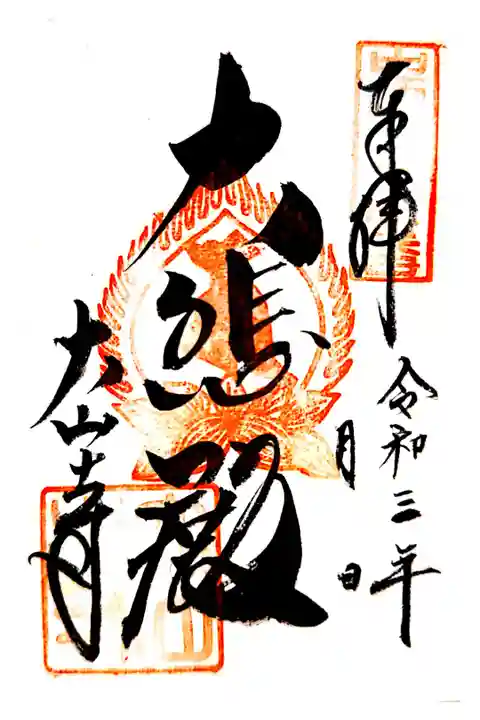 奉拝
令和三年
月 日
大悲殿
大山寺